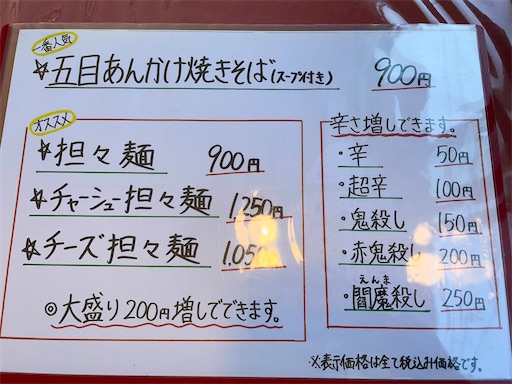 一番人気
☆五目あんかけ焼きそば(スープ付き) 900円
オススメ
☆担々麺 900円
☆チャーシュー担々麺 1,250円
☆チーズ担々麺 1,050円
◎大盛り200円増しでできます。
辛さ増しできます。
・辛 50円
・超辛 100円
・鬼殺し 150円
・赤鬼殺し 200円
えんま
・閻魔殺し 250円
※表示価格は全て税込み価格です。